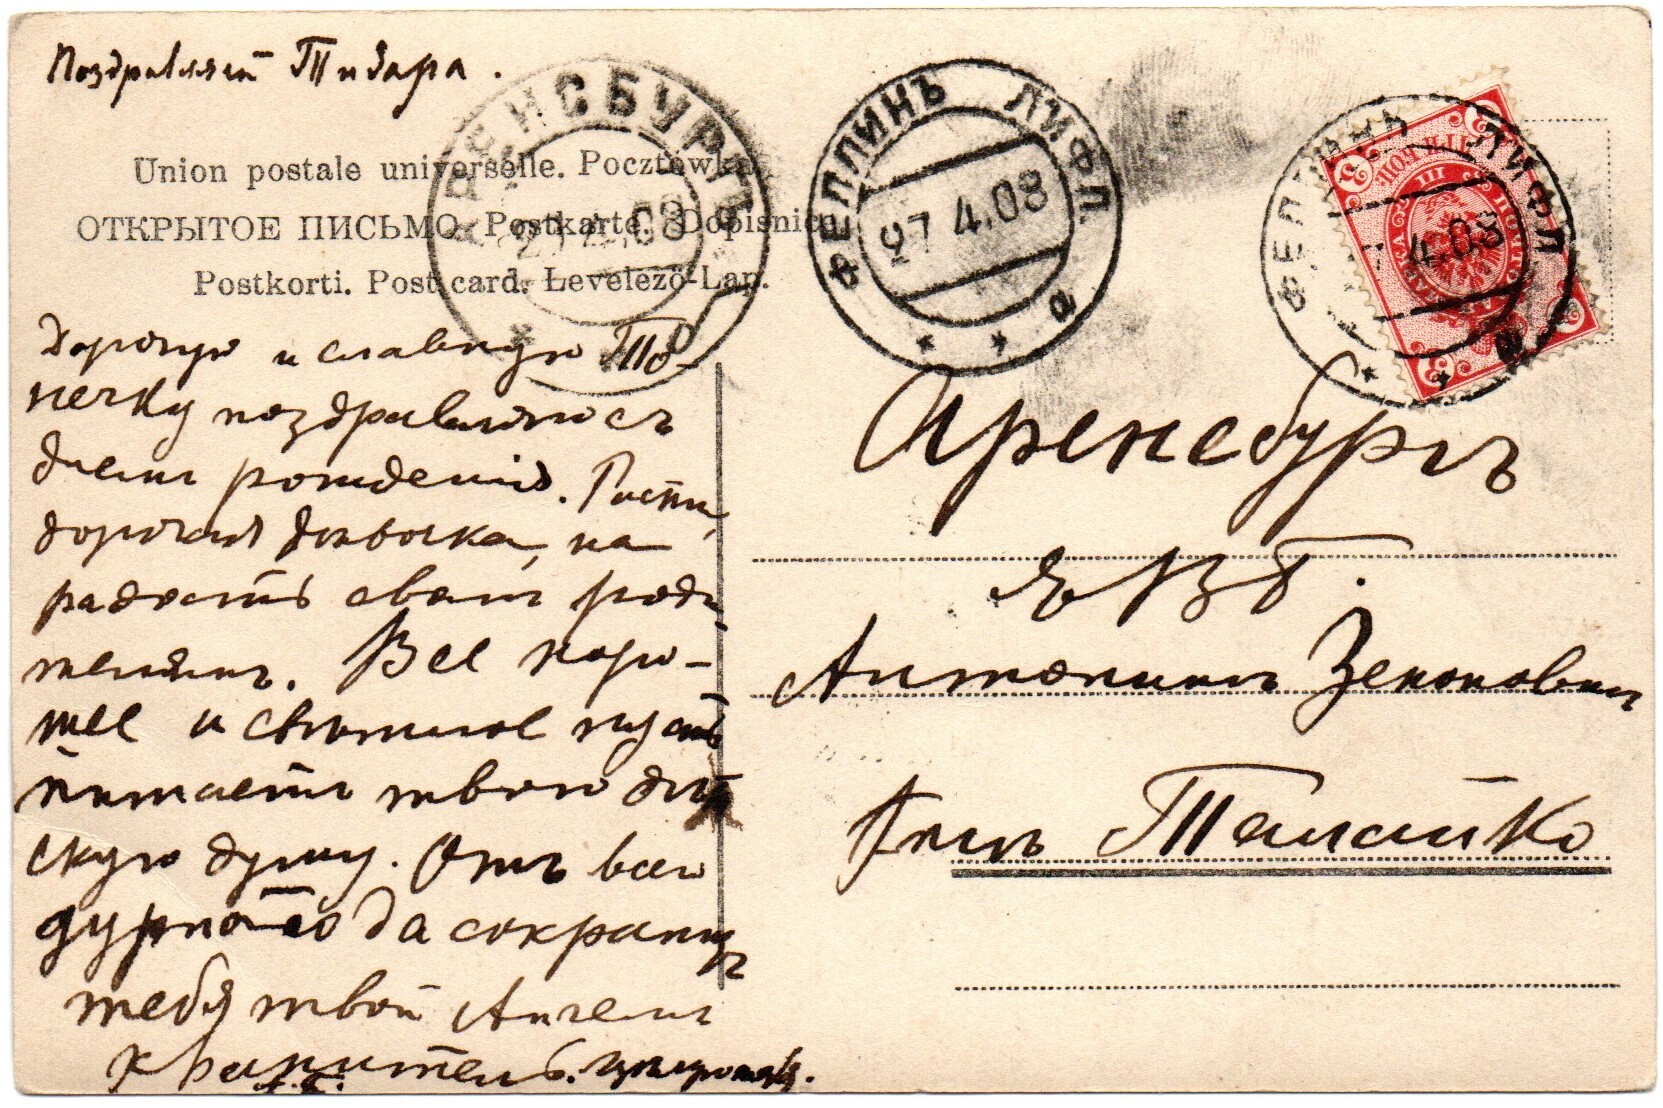 Поздравляетъ Тидара.
Union postale universelle. Pocztówka
ОТКРЫТОЕ ПИСЬМО Postkarte. Dopisnice
Postkorti. Post card. Levelező-Lap.
АРЕНСБУРГЪ
ФЕЛЛИНЪ ЛИФЛ.
27 4.08
а
ФЕЛЛИНЪ ЛИФЛ.
4.08
Дорогую и славную То-
нечку поздравляю съ
днемъ рожденія. Расти,
дорогая дѣвочка, на
радость своимъ роди-
телямъ. Все хоро-
шее и свѣтлое пусть
питаетъ твою дѣт
скую душу. Отъ всего
дурного да сохранитъ
тебя твой Ангелъ
Хранитель.
Аренсбургъ
ЕВБ.
Антонинѣ Зеноновнѣ
Телайко